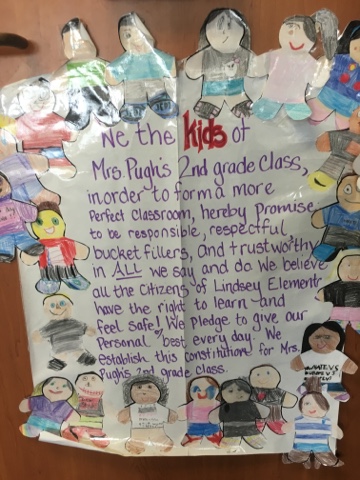 We the kids of
Mrs. Pugh's 2nd grade Class,
in order to form a more
Perfect Classroom, hereby Promise
to be responsible, respectful
bucket fillers, and trustworthy
in ALL we say and do. We believe
all the Citizens of Lindsey Element
have the right to learn and
feel safe! We pledge to give our
Personal best every day. We
establish this constitution for Mrs.
Pugh's 2nd grade Class.